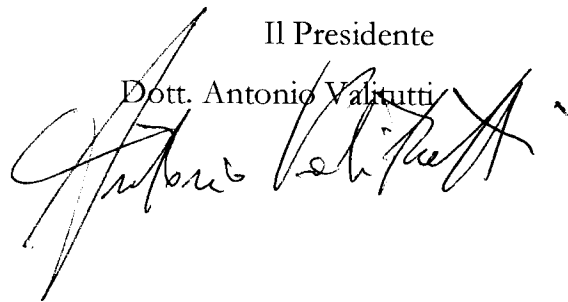 Il Presidente
Dott. Antonio Valitutti
Antonio Valitutti